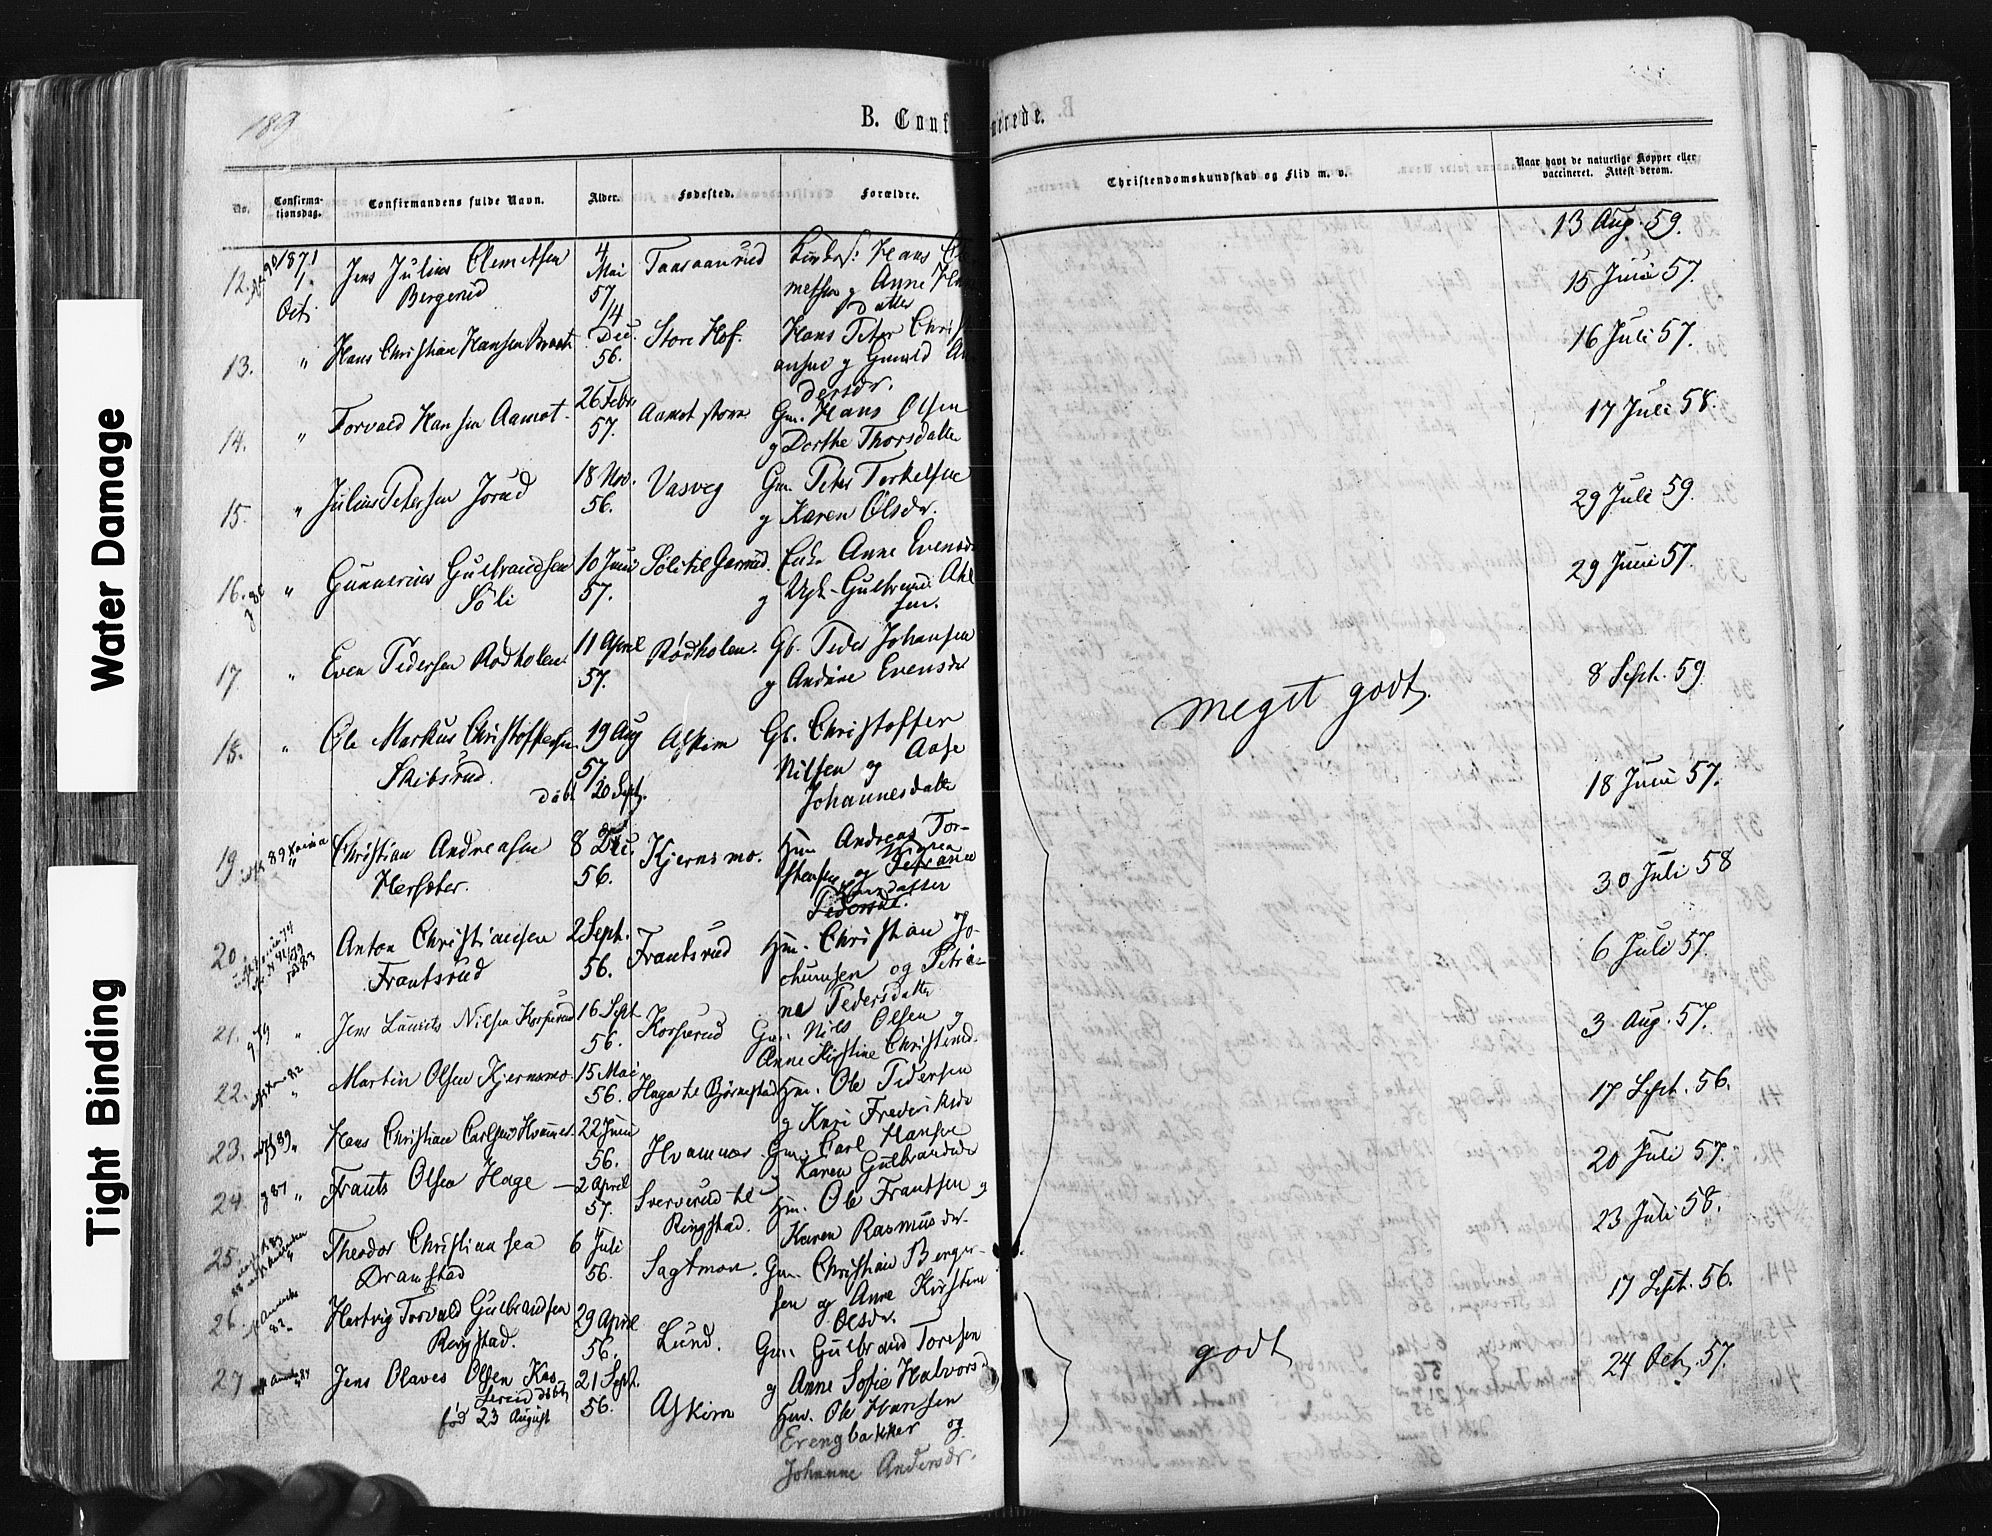 189
B. Conf
merede.
No.
Confirma-
tionsdag.
Confirmandens fulde Navn.
Alder.
Fødested.
Forældre.
Christendomskundskab og Flid m. v.
Naar havt de naturlige Kopper eller
vaccineret. Attest derom.
12. 1871 Jens Julius Clemetsen 4 Taasaanrud Hans
1. Bergerud Mai metsen og Anne
Oct. 57 datter
13. " Hans Christian Hansen 14 Dec. Store Hof. Hans Peter Chris
56. ansen og Gunild An
dersdr.
14. " Torvald Hansen Aamot 26 Febr. Aamot store Gm. Hans Olsen
57. og Dorthe Thorsdatter
15. " Julius Petersen Jorud 18 Nov. Vasveg Gm. Peter Torkelsen
56. og Karen Olsdr.
16. " Gunnerius Gulbrandsen 10 Juni Søli til Gerrud. Enke Anne Evensdr
Søli 57. og Ugk. Gulbrand
sen.
17 " Even Pedersen Rødholen 11 April Rødholen. Gb. Peder Johansen
57. og Andrine Evensdr
18. " Ole Markus Christoffersen 19 Aug Askim Gb. Christoffer
Skibsrud. 57. Nilsen og Aase
døbt 20 Sept. Johannesdatter
19 89 " Christian Andreasen 8 Dec. Kjernsmo. Hm. Andreas Tor-
Hersæter. 56. stensen og Petrane
Pedersdr.
20 Anton Christiansen 2 Sept. Frantsrud Hm. Christian Jo-
Frantsrud 56. chumsen og Petri-
ne Pedersdatter
21. " Jens Laurits Nilsen Korserud 16 Sept. Korserud Gm. Nils Olsen og
56. Anne Kirstine Christensd.
22. 82 " Martin Olsen Kjernsmo 15 Mai Haga til Bjørnstad Hm. Ole Pedersen
56. og Kari Frederiksdr
23. 89 " Hans Christian Carlsen Hvamner 22 Juni Hvamner Gm. Carl Hansen
56. og Karen Gulbrandsdr
24. 87 " Frants Olsen Hage 2 April Sververud til Hm. Ole Frantsen og
57. Ringstad. Karen Rasmusdr.
25. 83 Theodor Christiansen 6 Juli Sagtmon. Gm. Christian Berger-
Dramstad 56. sen og Anne Kirstine
Olsdr.
26. 82 " Hertvig Torvald Gulbrandsen 29 April Lund. Gm. Gulbrand Toresen
Ringstad. 56. og Anne Sofie Halvorsd
27 Jens Olaves Olsen Kas 21 Sept. Askim Hm. Ole Hansen
serud døbt 56. Erengbakker og
fød 23 August Johanne Andersdr.
meget godt.
godt
13 Aug. 59.
15 Juni 57.
16 Juli 57.
17 Juli 58.
29 Juli 59.
29 Juni 57.
8 Sept. 59
18 Juni 57.
30 Juli 58
6 Juli 57.
3 Aug. 57.
17 Sept. 56.
20 Juli 57.
23 Juli 58.
17 Sept. 56.
24 Oct. 57.
Water Damage
Tight Binding